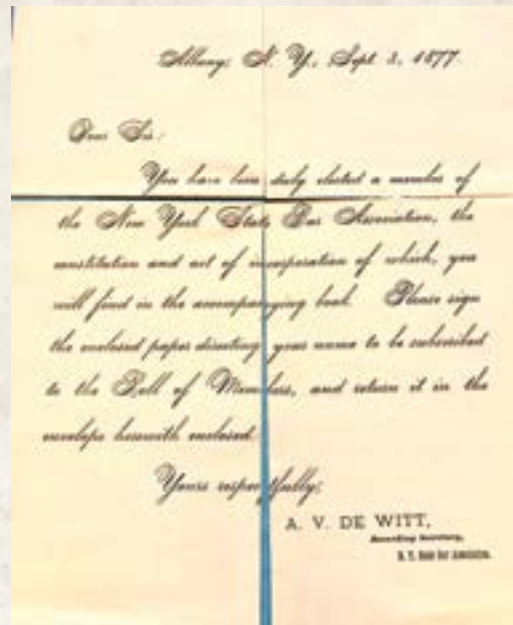 Albany, N. Y., Sept. 3, 1877.
Dear Sir:
You have been duly elected a member of
the New York State Bar Association, the
constitution and act of incorporation of which, you
will find in the accompanying book. Please sign
the enclosed paper directing your name to be subscribed
to the Roll of Members, and return it in the
envelope herewith enclosed.
Yours respectfully,
A. V. DE WITT,
Recording Secretary,
N. Y. State Bar Association.